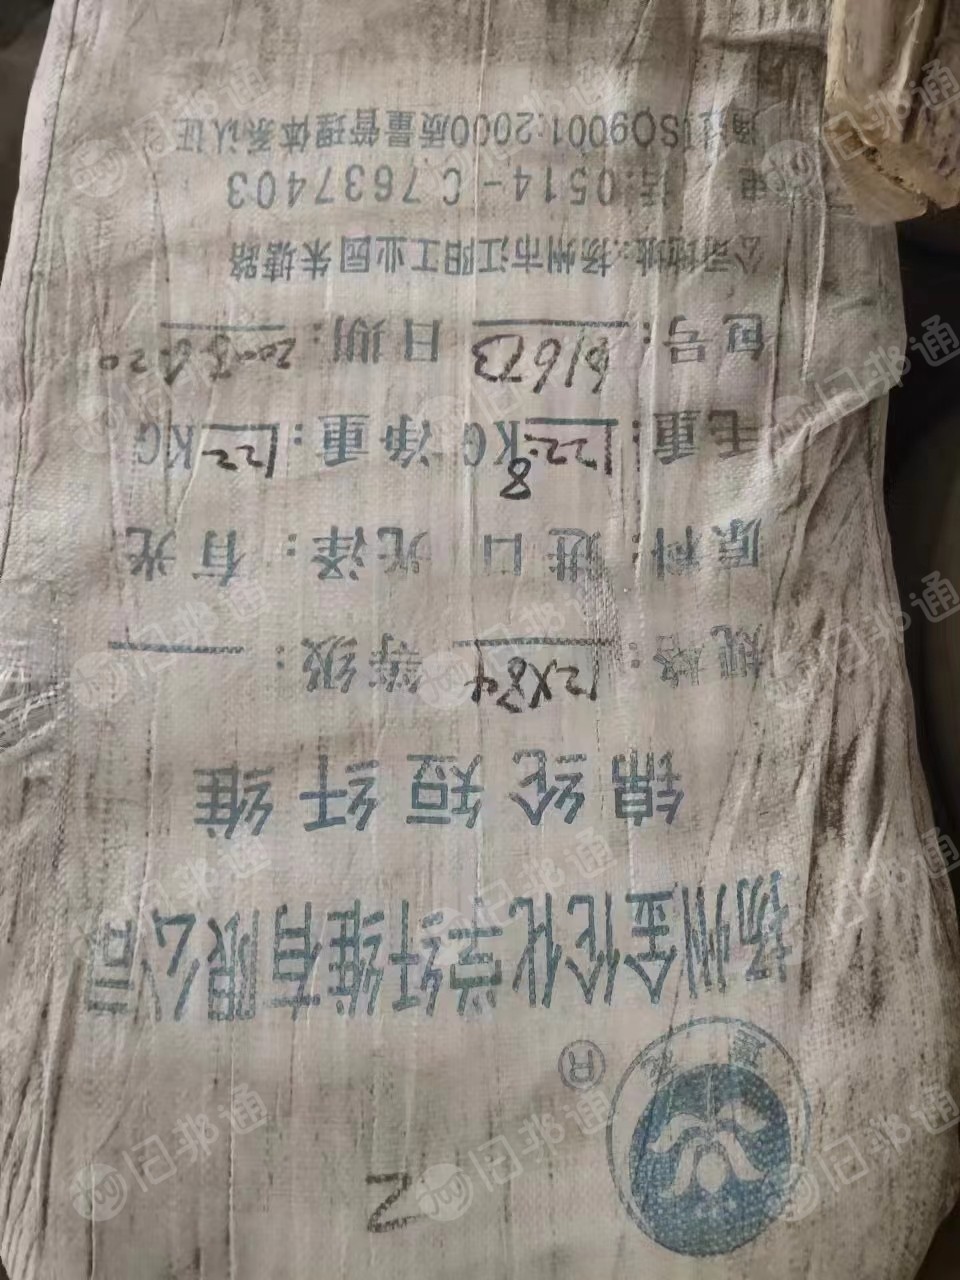 ®
扬州金伦化学纤维有限公司
锦纶短纤维
规格: 12X84 等级:
原料: 进口 光泽: 有光
毛重: 122.8 KG 净重: 122 KG
包号: 日期:
公司地址:扬州市江阳工业园朱塘路
电 话:0514-C.7637403
通过ISO9001:2000质量管理体系认证
旧邦通